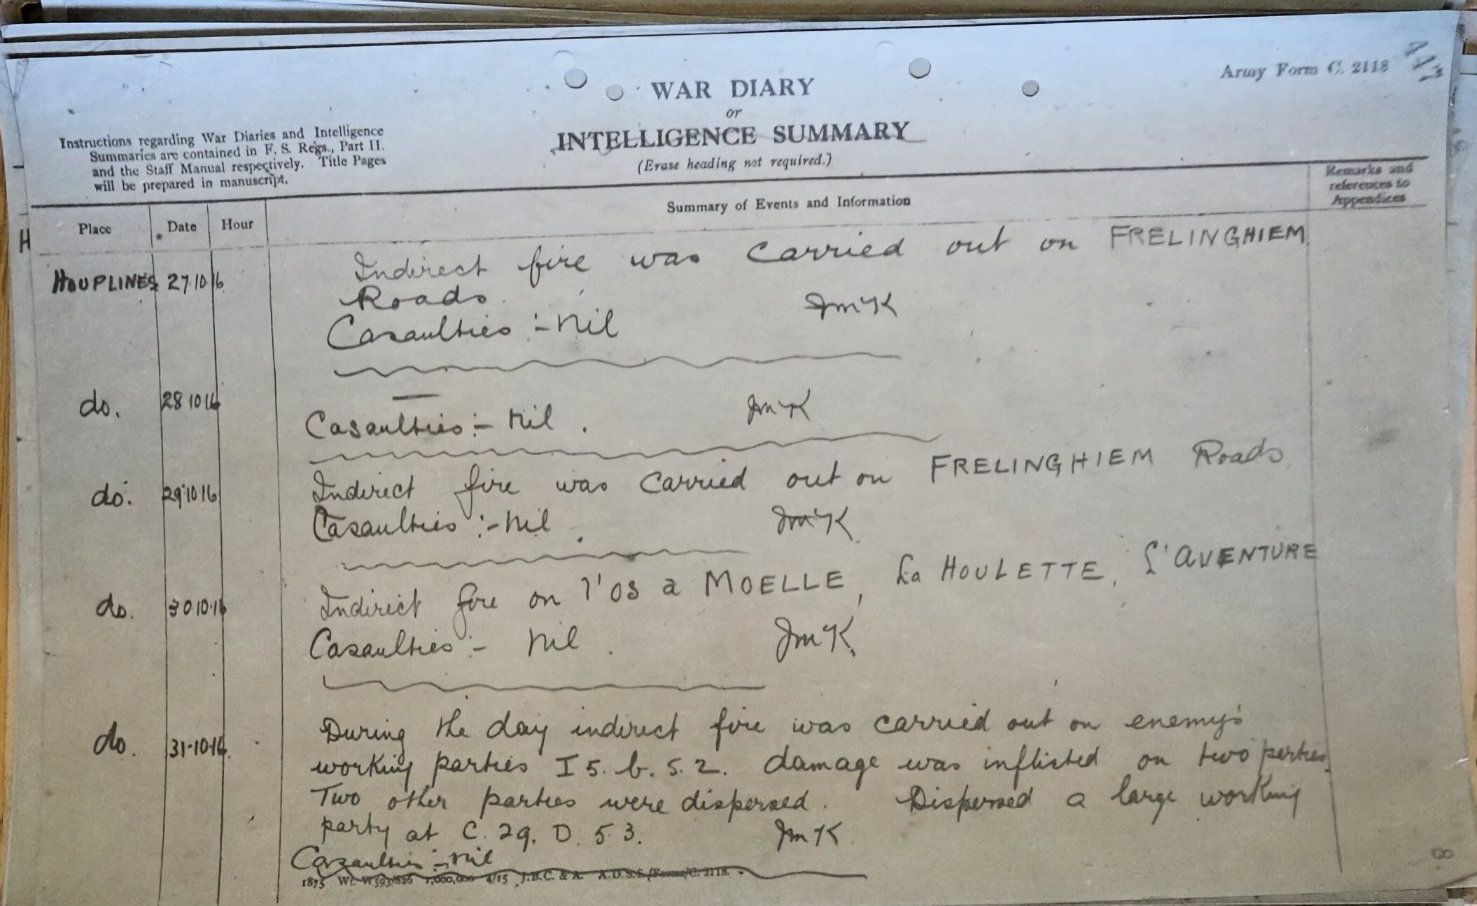 Army Form C. 2118
WAR DIARY
or
INTELLIGENCE SUMMARY
(Erase heading not required.)
Instructions regarding War Diaries and Intelligence
Summaries are contained in F. S. Regs., Part II.
and the Staff Manual respectively. Title Pages
will be prepared in manuscript.
Place Date Hour Summary of Events and Information Remarks and references to Appendices
HOUPLINES 27.10.16 Indirect fire was carried out on FRELINGHIEM
Roads.
Casaulties :- nil JMK
do. 28 10 16 —
Casaulties :- nil . JMK
do. 29 10 16 Indirect fire was carried out on FRELINGHIEM Roads.
Casaulties :- nil . JMK
do. 30 10 16 Indirect fire on l'os a MOELLE, La HOULETTE, L'AVENTURE
Casaulties :- nil . JMK
do. 31-10-16 During the day indirect fire was carried out on enemy's
working parties I 5. b. 5. 2. damage was inflicted on two parties.
Two other parties were dispersed. Dispersed a large working
party at C. 29. D. 5 3. JMK
Casaulties :- nil
1875 Wt. W593/826 1,000,000 4/15 J.B.C. & A. A.D.S.S./Forms/C. 2118.